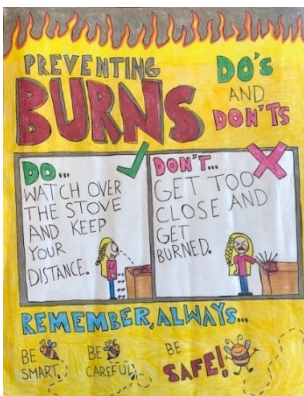 PREVENTING
BURNS
DO'S
AND
DON'TS
DO...
WATCH OVER
THE STOVE
AND KEEP
YOUR
DISTANCE.
DON'T...
GET TOO
CLOSE AND
GET
BURNED.
REMEMBER, ALWAYS...
BE
SMART,
BE
CAREFUL,
BE
SAFE!